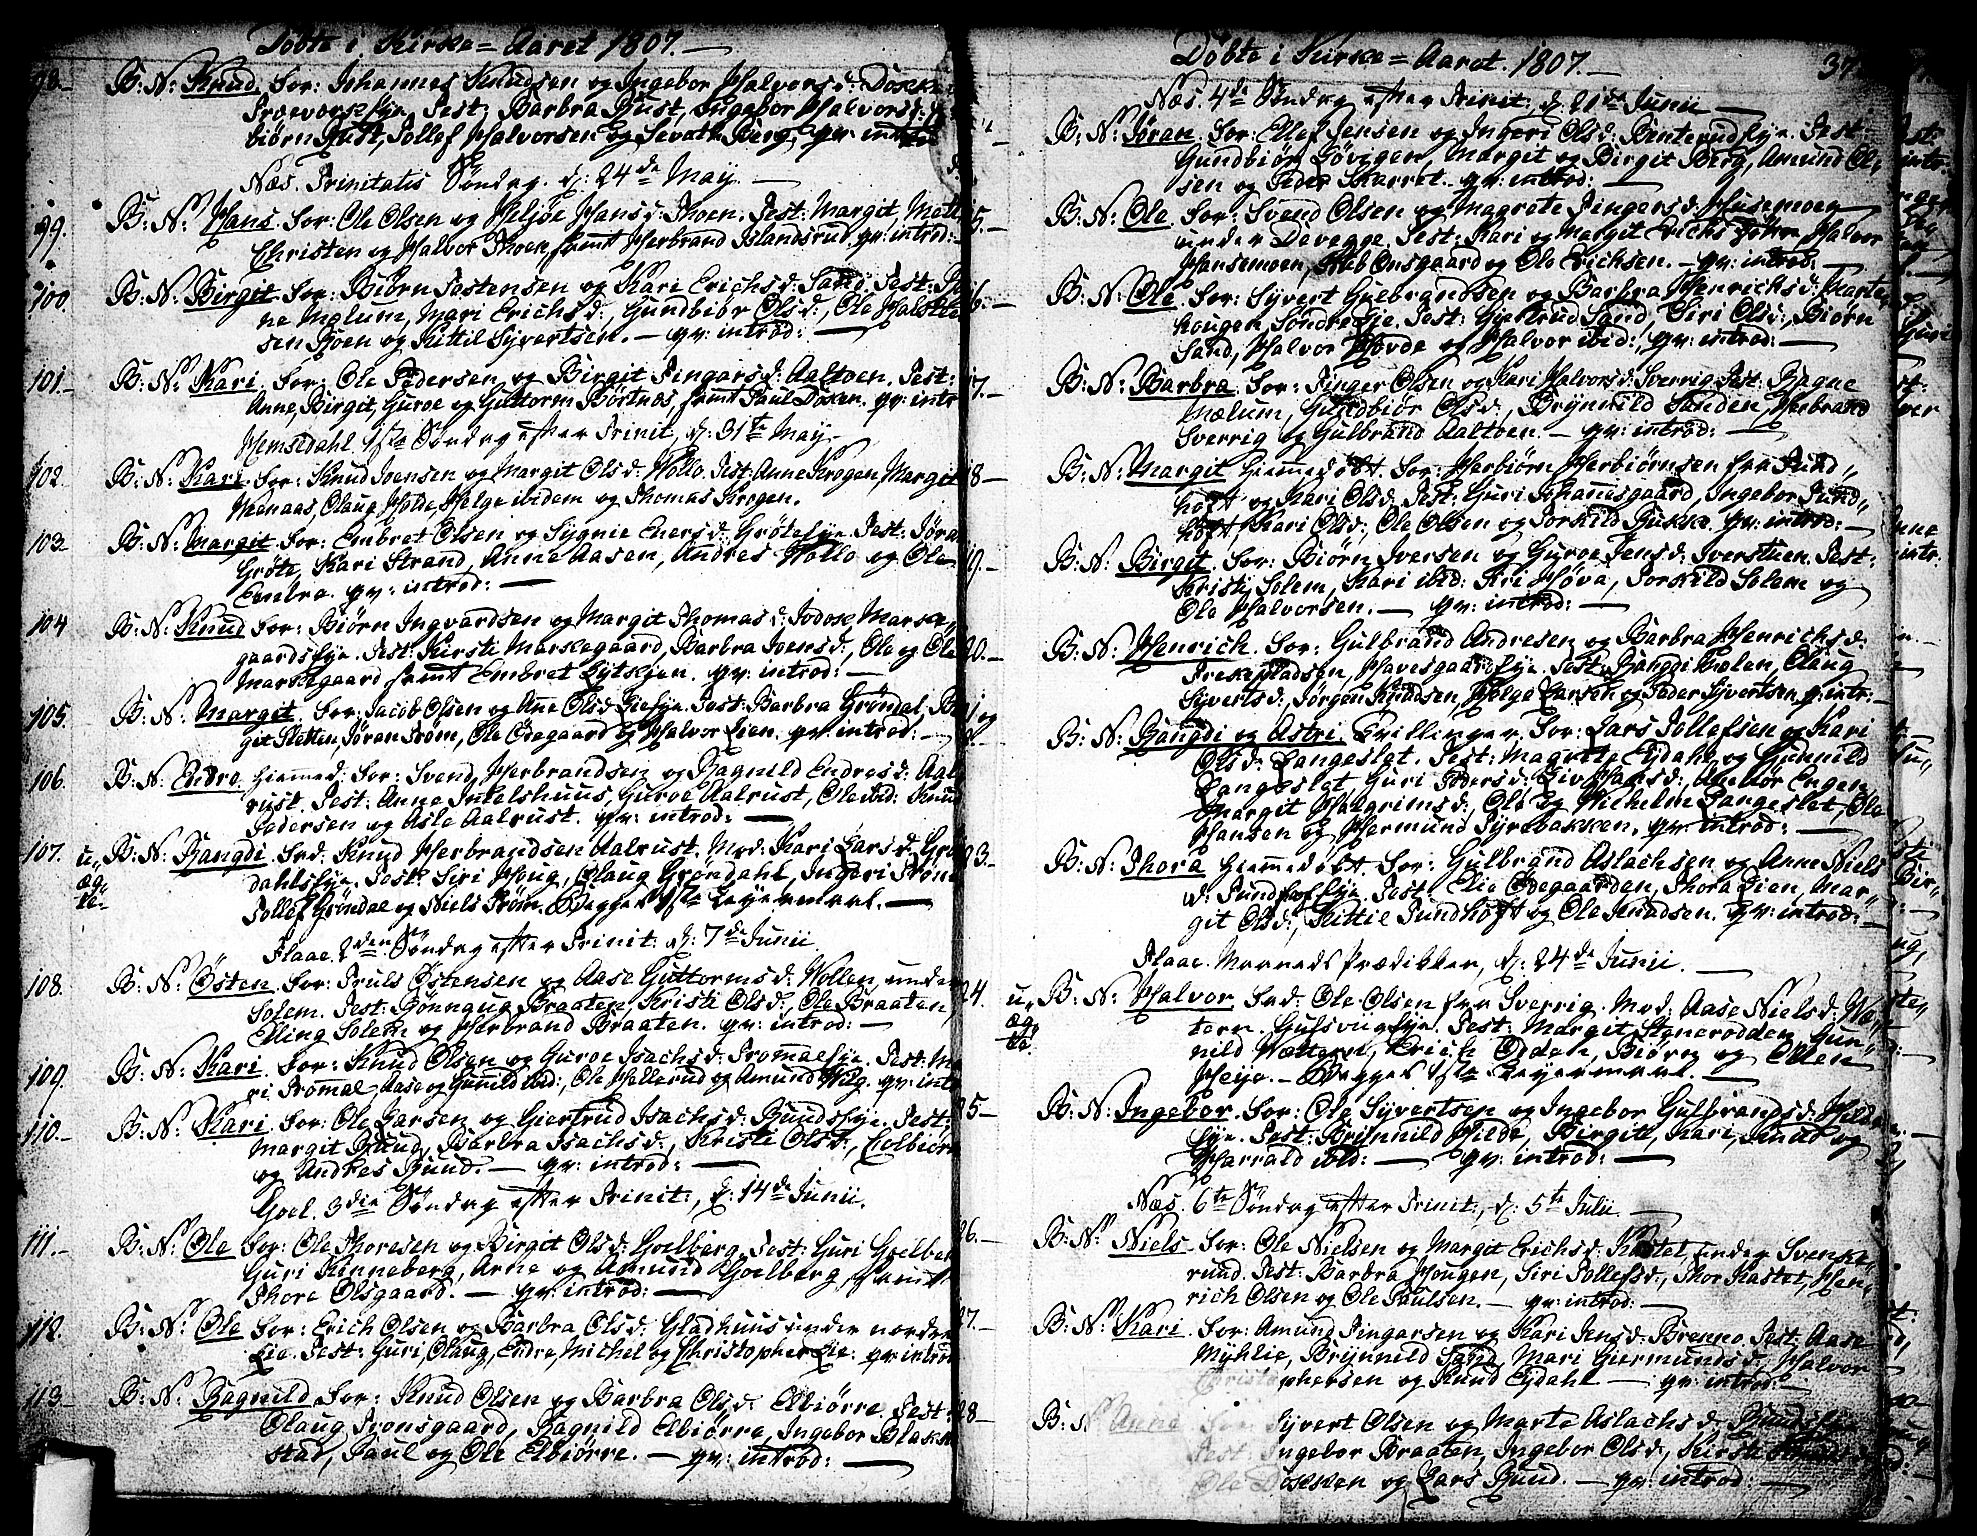 Döbte i Kirke=Aaret 1807.
98. B: N: Knud. For: Johannes Knudsen og Ingebor Halvorsd: Dokk
Test: Barbra Rust, Ingebor Halvorsd:
biørn Rust, Tollef Halvorsen og Sevath Berg, qv: introd
Næs. Trinitatis Söndag. d: 24de May.
99. B: N: Hans. For: Ole Olsen og Heljöe Hansd: Thoen. Test: Margit, Mett
Christen og Halvor Thoen samt Herbrand Islandsrud. qv: introd:
100. B: N: Birgit. For: Biörn Tostensen og Kari Erichsd: Sand. Test:
ne Mælum, Mari Erichsd:, Gundbiör Olsd:, Ole Halste
sen Roen og Kittil Syvertsen. qv: introd:
101. B: N: Kari. For: Ole Pedersen og Birgit Tingarsd: Aaltoen. Test:
Anne, Birgit, Guroe og Guttorm Börtnes, samt Paul Doken. qv: intr
Hemsedahl 1ste Söndag efter Trinit, d: 31te May.
102. B: N: Kari. For: Knud Joensen og Margit Olsd: Wollo. Test: Anne Krogen, Margit
Ulenaas, Olaug Holde, Helge ibidem og Thomas Krogen.
103. B: N: Margit. For: Embret Olsen og Sygnie Eversd: Gröteeye. Test: Jöra
Gröte, Kari Strand, Anne Aasen, Andres Wollo og Ole
Embre. qv: introd:
104. B: N: Knud. For: Biörn Ingvardsen og Margit Thomasd: Markee
gaardseye. Test: Kirsti Markegaard, Barbra Joensd:, Ole og Ole
Markegaard samt Embret Lytskjen. qv: introd:
105. B: N: Margit. For: Jacob Olsen og Ane Olsd: Lieeye. Test: Barbra Gröndal, B
git Sletten, Jöran Tröm, Ole Ödegaard og Halvor Lien. qv: introd:
106. B: N: Endre. hiemmed: For: Svend Herbrandsen og Ragnild Endresd: Aal
rust. Test: Anne Intelshuus, Guroe Aalrust, Ole ibid: Knud
Pedersen og Asle Aalrust. qv: introd:
107. u-ægte. B: N: Rangdi. Fad: Knud Herbrandsen Aalrust. Mod: Kari Larsd: Grön
dahlseye. Test: Siri Houg, Olaug Gröndahl, Ingeri Tröm
Tollef Gröndal og Niels Tröm. Begges 1ste Leyermaal.
Flaae. 2den Söndag efter Trinit: d: 7de Junii.
108. B: N: Östen. For: Truls Östensen og Aase Guttormsd: Wollen, under
Solem. Test: Rönnaug Braaten, Kristi Olsd:, Ole Braaten,
Elling Solem og Herbrand Braaten. qv: introd:
109. B: N: Kari. For: Knud Olsen og Guroe Isachsd: Trommaleye. Test: Ma
ri Trommal, Aase og Gunnild ibid:, Ole Hellerud og Amund Wiig. qv: intr
110. B: N: Kari. For: Ole Larsen og Giertrud Isachsd: Ruudseye. Test:
Margit Ruud, Barbra Isachsd:, Kristi Olsd:, Colbiörn
og Andres Ruud. qv: introd:
Goel. 3die Söndag efter Trinit:, d: 14de Junii.
111. B: N: Ole. For: Ole Thoresen og Birgit Olsd: Goelberg. Test: Guri Goelber
Guri Rinneberg, Arne og Amund Goelberg, samt
Thore Olsgaard. qv: introd:
112. B: N: Ole. For: Erich Olsen og Barbra Olsd: Gladhuus under nordre
Lie. Test: Guri, Olaug, Endre, Michel og Christopher Lie. qv: introd
113. B: N: Ragnild. For: Knud Olsen og Barbra Olsd: Elbiörre. Test:
Olaug Tronsgaard, Ragnild Elbiörre, Ingebor Blakk
stad, Paul og Ole Elbiörre. qv: introd:
Döbte i Kirke=Aaret. 1807. 37.
Næs. 4de Söndag efter Trinit: d: 21de Junii
B: N: Jöran. For: Ellef Jensen og Ingeri Olsd: Binterudeye. Test:
Gundbiör Lövigen, Margit og Birgit Berg, Amund Ol-
sen og Peder Skarret. qv: introd:
15. B: N: Ole. For: Svend Olsen og Magrete Tingersd: Husemoen
under Devegge. Test: Kari og Margit Erichs Halvor
Hansemoen, Onsgaard og Ole Erichsen. qv: introd:
16. B: N: Ole. For: Syvert Gulbrandsen og Barbra Henrichsd: Marte
hougen, Söndreeye. Test: Giertrud Sand, Siri Olsd:, Biörn
Sand, Halvor Hovde og Halvor ibid:, qv: introd:
17. B: N: Barbra. For: Tinger Olsen og Kari Halvorsd: Sverrig. Test: Ragne
Mælum, Gundbiör Olsd:, Brynnild Sanden, Herbrand
Sverrig og Gulbrand Aaltoen. qv: introd:
18. B: N: Margit hiemmedöbt. For: Herbiörn Herbiörnsen fra Sund-
höft og Kari Olsd: Test: Guri Johannesgaard, Ingebor Sund-
höft, Kari Olsd:, Ole Olsen og Torkild Rukke. qv: introd:
19. B: N: Birgit. For: Biörn Iversen og Guroe Jensd: Iverstuen. Test:
Kristi Solem, Kari ibid: Siri Höva, Torkild Solem og
Ole Halvorsen. qv: introd:
20. B: N: Henrich. For: Gulbrand Andresen og Barbra Henrichsd:
Trekepladsen, Havesgaardseye. Test: Rangdi Bralen, Olaug
Syvertsd:, Jörgen Knudsen, Helge Larsen og Peder Syvertsen qv: intr:
21 og 22. B: N: Rangdi og Astri. Tvillinger. For: Lars Tollefsen og Kari
Olsd: Langeslet. Test: Magrete Eydahl og Gunnild
Langeslet, Guri Pedersd: Liv Hansd: Engen
Margit Halgrimsd: Ole og Wichelm Langeslet, Ole
Hansen og Hermund Tyrebakken. qv: introd:
23. B: N: Thora hiemmedöbt. For: Gulbrand Aslachsen og Anne Niels
d: Sundhöfteye. Test: Elie Ödegaarden, Thora Lien, Mar-
git Olsd:, Kittil Sundhöft og Ole Knudsen. qv: introd:
Flaae. Maaneds Prædikken, d: 24de Junii.
24. u-ægte. B: N: Halvor. Fad: Ole Olsen fra Sverrig. Mod: Aase Nielsd: Wæ-
tern, Gulsvigeye. Test: Margit Stgnerodden, Gun-
nild Wættern, Erich Örden, Biörn og Ellen
Heye. Begges 1ste Leyermaal.
25. B: N: Ingebor. For: Ole Syvertsen og Ingebor Gulbrandsd: Hilde
eye. Test: Brynnild Hilde, Birgit, Kari, Knud og
Harrald ibid: qv: introd:
Næs. 6te Söndag efter Trinit:, d: 5te Julii
26. B: N: Niels. For: Ole Nielsen og Margit Erichsd: Kastet, under Svenke-
rud. Test: Barbra Hougen, Siri Tollefsd:, Thor Kastet, Hen-
rich Olsen og Ole Paulsen. qv: introd:
27. B: N: Kari. For: Amund Tingarsen og Kari Jensd: Brenno. Test: Aase
Myhlie, Brynnild Sand, Mari Giermundsd: Halvor
Christophersen og Knud Eydahl qv: introd:
28. B: N: Anne. For: Syvert Olsen og Marte Aslachsd: Ruudseye
Test. Ingebor Braaten, Ingebor Olsd:, Kirsti
Ole Dokken og Lars Ruud. qv: introd: